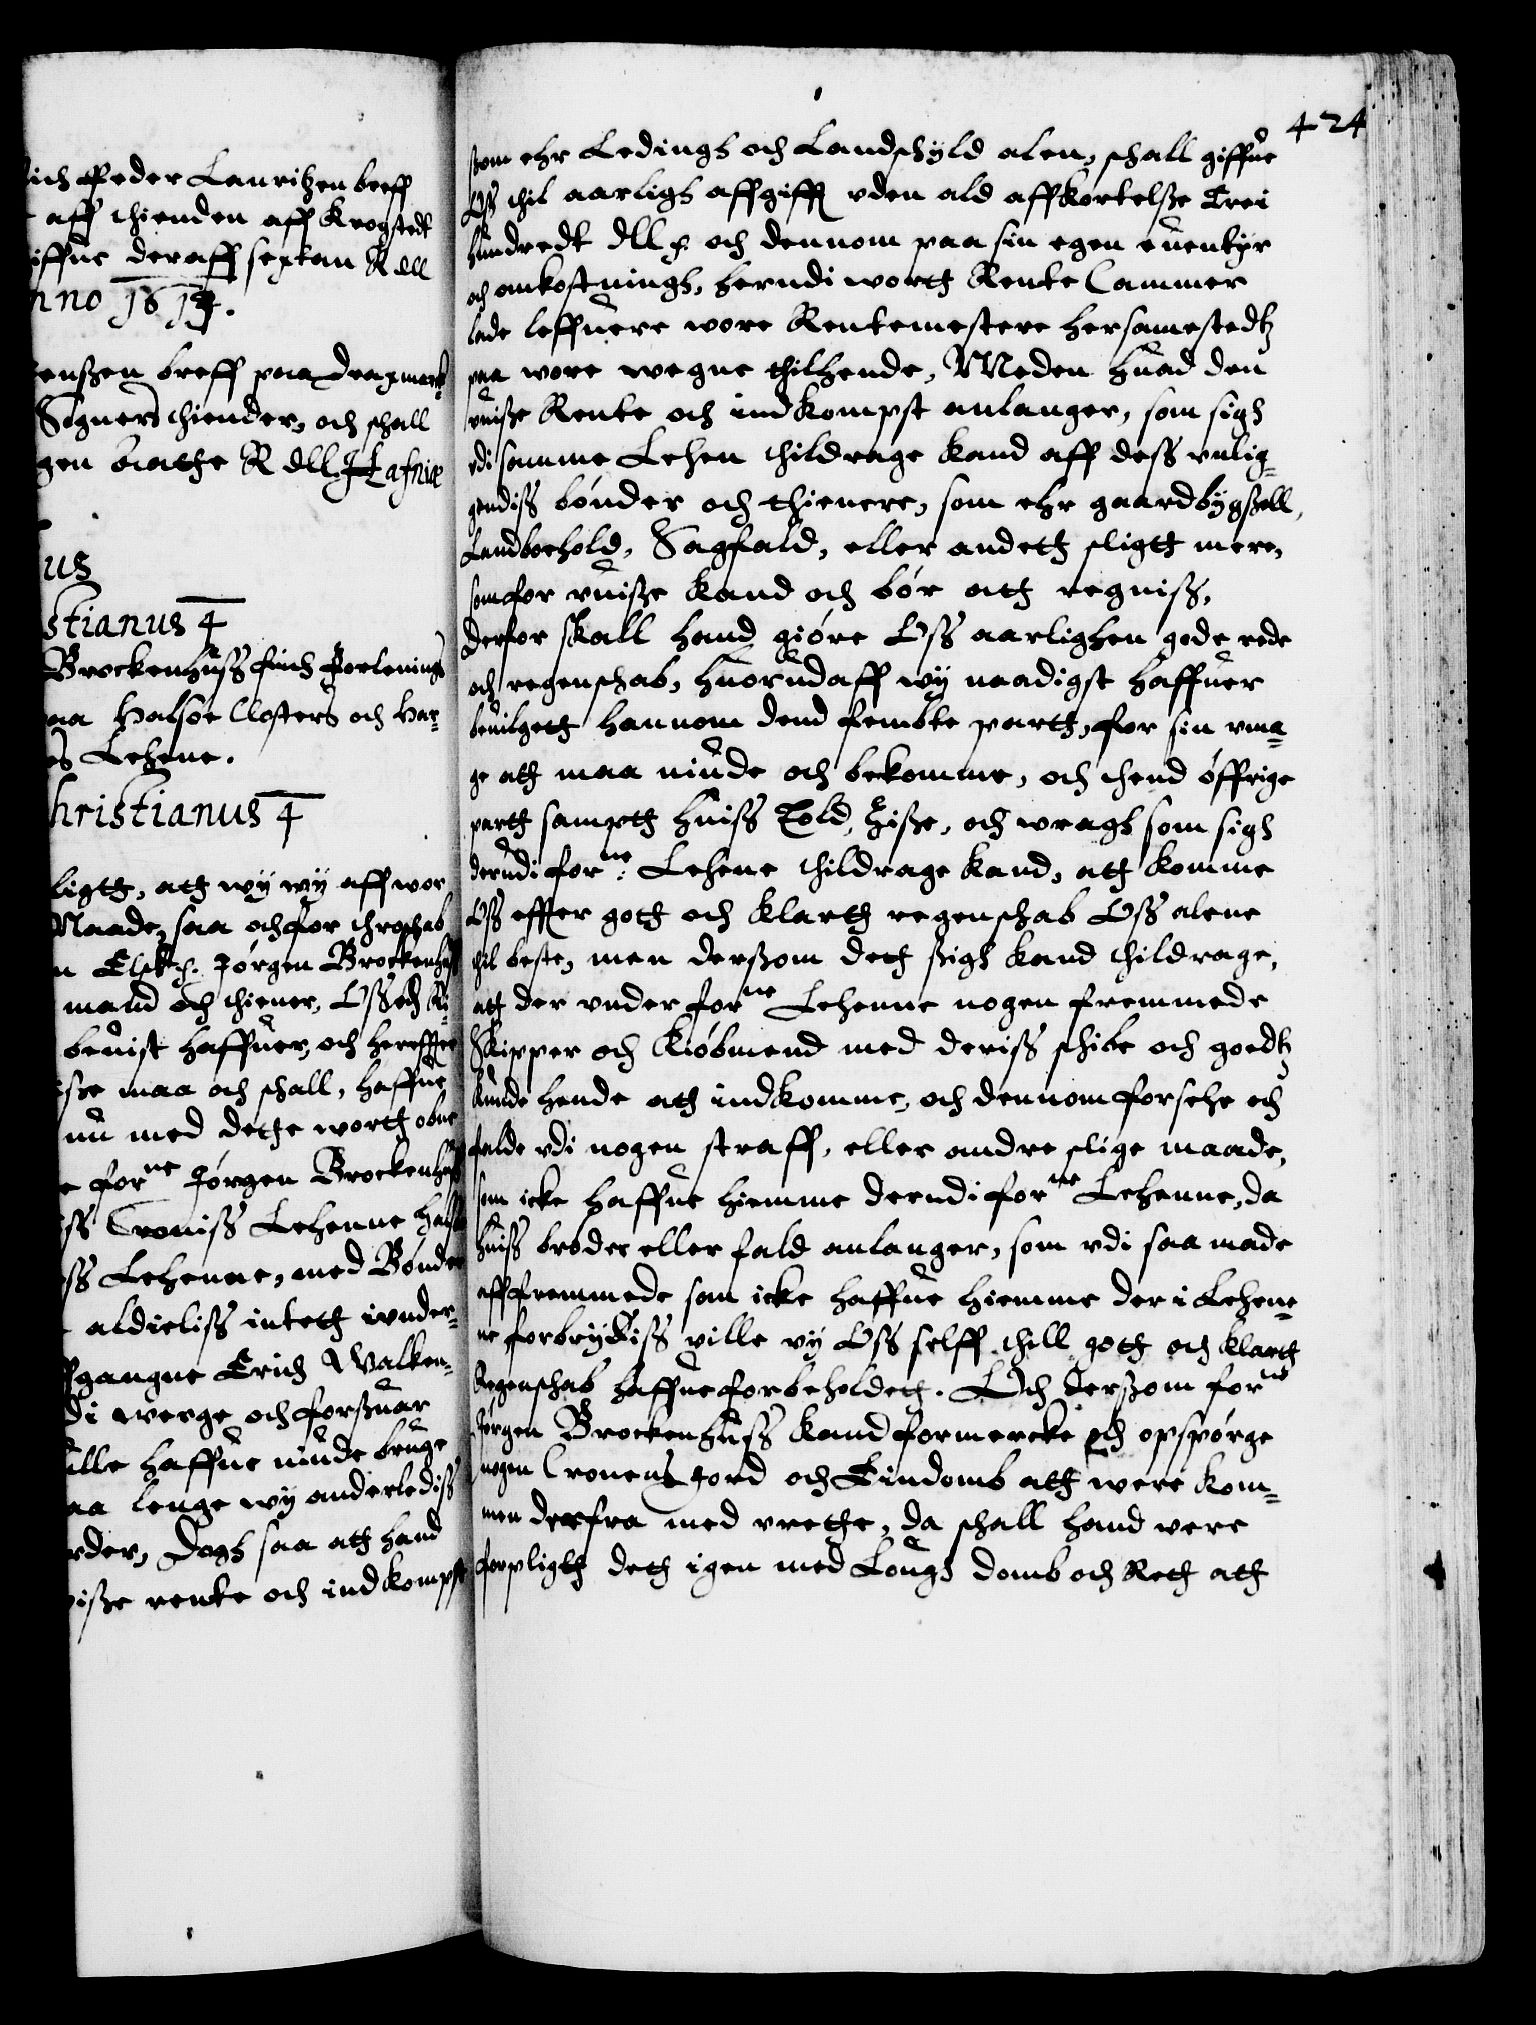 ich Peder Lauritzen breff
aff thienden aff Krogstedt
iffue deraff septan R dll
nno 1614.
enssen breff paa Dragmark
Sogners thiender, och schall
gen otathe R dll. Hafniæ
us
stianus 4
Brockenhuss fich Forlenings
aa Halsøe Closters och Har-
s Lehene.
hristianus 4
ligth, ath wy wy aff wor
Naade, saa och for throschab
n Elsk. Jørgen Brockenhuss
mand och thiener, Oss och Ri-
beuist haffuer, och hereffter
sse maa och schall, haffue
nu med dethe worth obne
e forne Jørgen Brockenhuss
ss Croniss Lehenne Hals
ss Lehenne, med Bønder
aldieliss inteth wnder-
ffgangne Erich Walken-
di werge och forsuar
ulle haffue niude bruge
aa lenge wy anderlediss
rder, Dogh saa ath hand
isse rente och indkompst
424
som ehr Ledings och Landschyld alen, schall giffue
Oss thil aarligh affgifft vden ald affkortelsse Trei
hundredt dllr och dennom paa sin egen euentyr
och omkostnings, herudi worth Rente Cammer
lade leffuere wore Rentemestere hersamestedtz
paa wore wegne thilhende, Meden huad den
uuisse Rente och indkompst anlanger, som sigh
vdi samme Lehen thildrage kand aff dess vnlig-
gendiss bønder och thienere, som ehr gaardbygssell,
Landbohold, Sagfald, eller andeth sligtt mere,
som for vuisse kand och bør ath regniss,
derfor skall hand giøre Oss aarlighen gode rede
och regenschab, huorudaff wy naadigst haffuer
beuilgeth hannom dend fembte parth, for sin vma-
ge ath maa niude och bekomme, och thend øffrige
parth sampth huiss Told, Sisse, och wragh som sigh
derudi forne: Lehene thildrage kand, ath komme
Oss effter goth och klarth regenschab Oss alene
thil beste, men derssom deth ssigh kand thildrage,
ath der vnder forne Lehenne nogen fremmede
Skipper och Kiøbmend med deriss schibe och goedtz
kunde hende ath indkomme, och dennom forsehe och
falde vdi nogen straff, eller andre slige maade,
som icke haffue hiemme derudi forne Lehenne, da
huiss brøder eller fald anlanger, som vdi saa made
aff fremmede som icke haffue hiemme der i Lehene-
ne forbrydiss ville vy Oss selff thill goth och klarth
Regenschab haffue forbeholdeth. Och derssom forne
Jørgen Brockenhuss kand formercke och opspørge
nogen Cronens Jord och Eindomb ath were kom-
men derfra med vrethe, da schall hand vere
forpligth deth igen med Lough domb och Reth ath